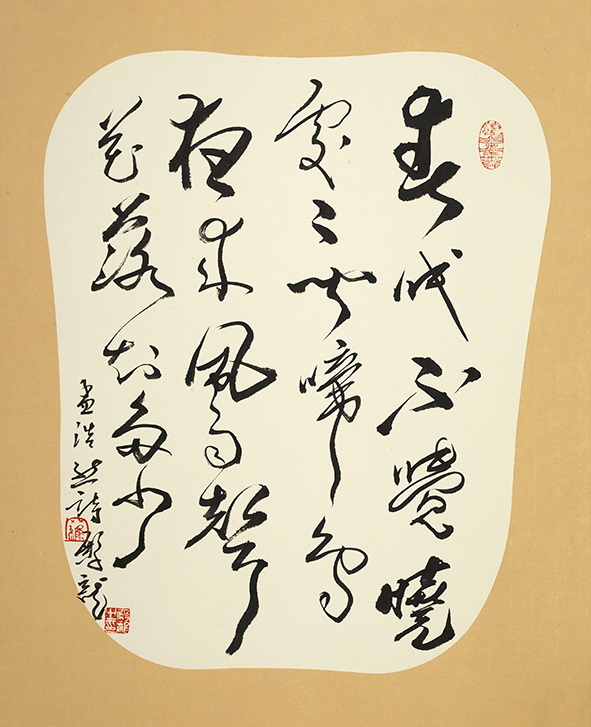 春眠不覺曉
處〻聞啼鳥
夜來風雨聲
花落知多少
孟浩然詩